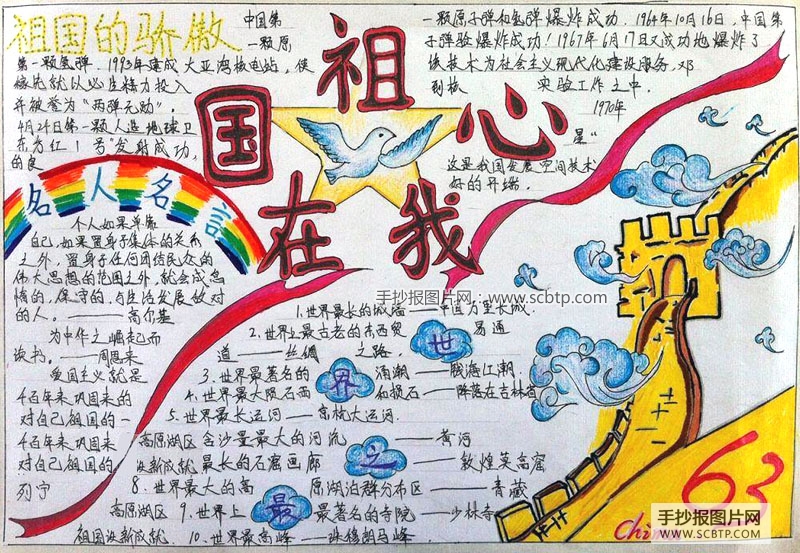 祖国的骄傲
中国第
一颗原
第一颗氢弹．1993年建成大亚湾核电站，使
稼先就以必生精力投入
并被誉为“两弹元勋”．
4月24日第一颗人造地球卫
东方红1号发射成功，
的良
祖
国 心
在 我
一颗原子弹和氢弹爆炸成功．1964年10月16日，中国第
子弹验爆炸成功！1967年6月17日又成功地爆炸了
该技术为社会主义现代化建设服务．邓
到核 实验工作之中．
1970年
星“
这是我国发展空间技术
好的开端．
名人名言
个人如果单靠
自己，如果置身于集体的关系
之外，置身于任何团结民众的
伟大思想的范围之外，就会成怠
惰的，保守的，与生活发展敌对
的人．——高尔基
为中华之崛起而
读书．——周恩来
爱国主义就是
千百年来巩固来的
对自己祖国的一
千百年来巩固来
对自己祖国的
列宁
世界之最
1.世界最长的城墙——中国万里长城．
2.世界上最古老的东西贸易通
道——丝绸之路．
3.世界最著名的 清潮——钱海江潮．
4.世界最大陨石雨 和损石——降落在吉林省
5.世界最长运河——京杭大运河
高原湖区含沙量最大的河流——黄河
没新成就最长的石窟画廊——敦煌莫高窟
8.世界最大的高原湖泊群分布区——青藏
高原湖区 9.世界上最著名的寺院——少林寺
祖国没新成就 10.世界最高峰——珠穆朗玛峰．
手抄报图片网：www.scbtp.com
63
Chin
手抄报图片网
WWW.SCBTP.COM